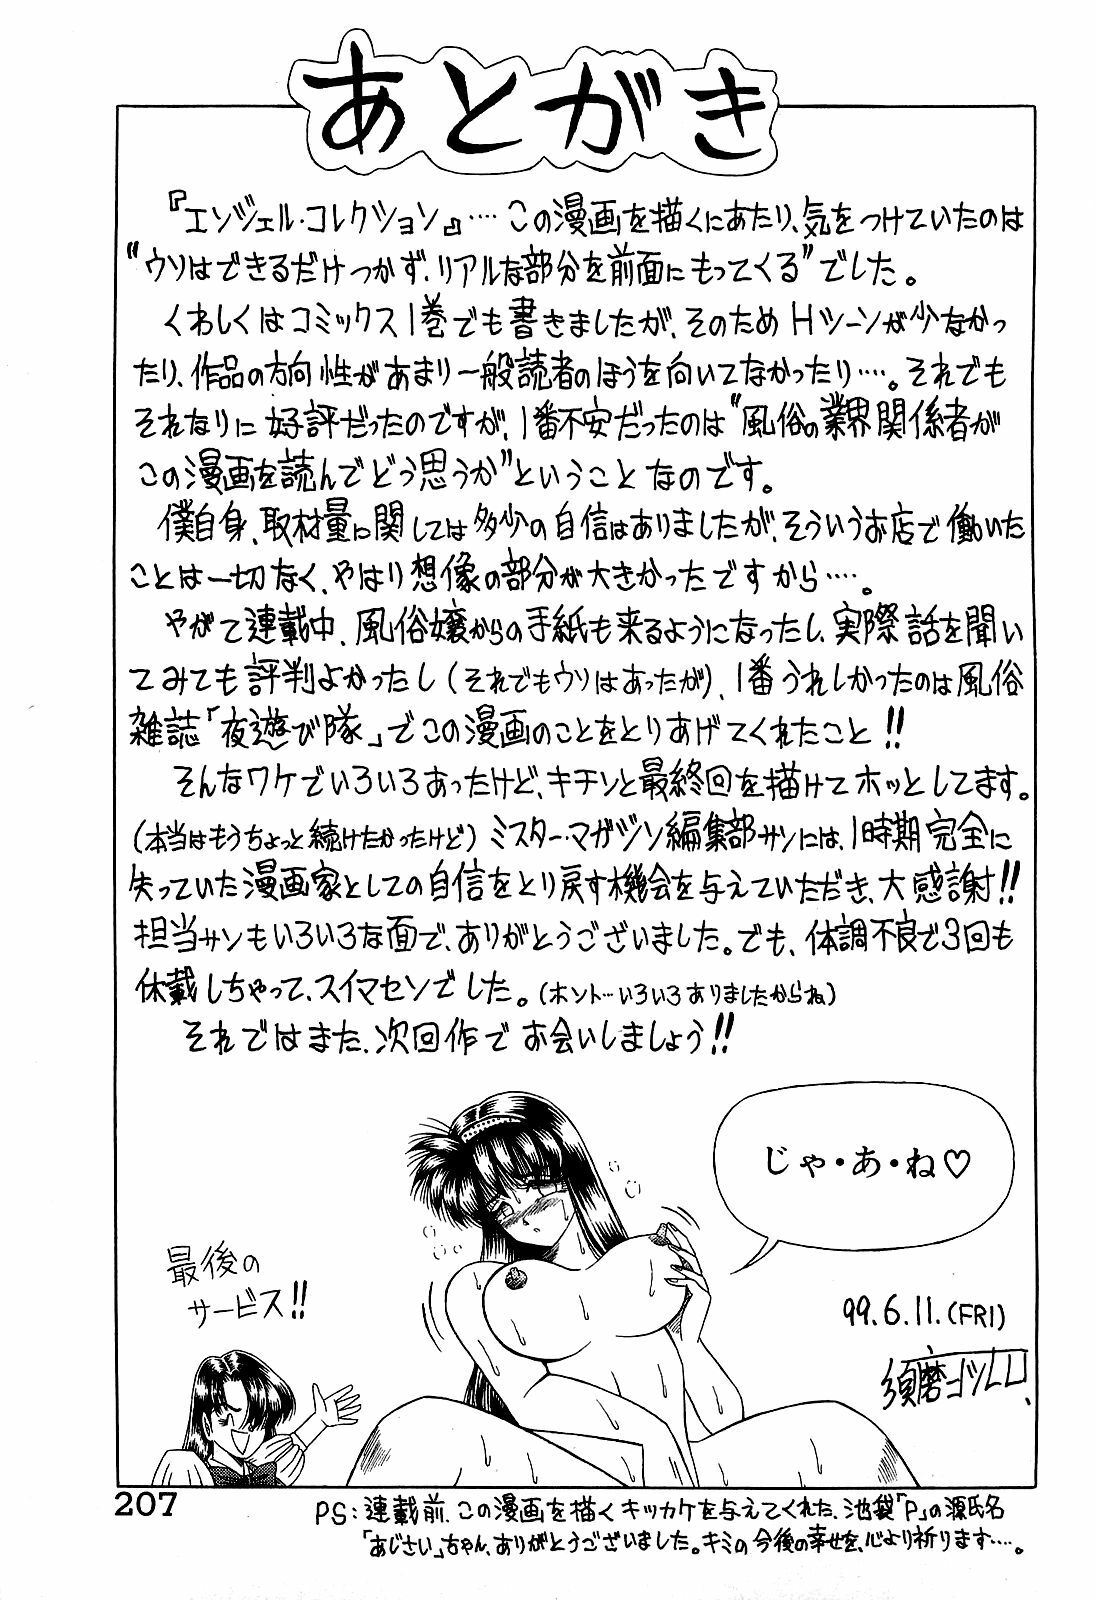 あとがき
『エンジェル・コレクション』‥‥この漫画を描くにあたり、気をつけていたのは
"ウソはできるだけつかず、リアルな部分を前面にもってくる"でした。
くわしくはコミックス1巻でも書きましたが、そのためHシーンが少なかっ
たり、作品の方向性があまり一般読者のほうを向いてなかったり‥‥。それでも
それなりに好評だったのですが、1番不安だったのは"風俗の業界関係者が
この漫画を読んでどう思うか"ということなのです。
僕自身、取材量に関しては多少の自信はありましたが、そういうお店で働いた
ことは一切なく、やはり想像の部分が大きかったですから‥‥。
やがて連載中、風俗嬢からの手紙も来るようになったし、実際話を聞い
てみても評判よかったし(それでもウソはあったが)、1番うれしかったのは風俗
雑誌「夜遊び隊」でこの漫画のことをとりあげてくれたこと!!
そんなワケでいろいろあったけど、キチンと最終回を描けてホッとしてます。
(本当はもうちょっと続けたかったけど)ミスター・マガジン編集部サンには、1時期完全に
失っていた漫画家としての自信をとり戻す機会を与えていただき、大感謝!!
担当サンもいろいろな面で、ありがとうございました。でも、体調不良で3回も
休載しちゃって、スイマセンでした。(ホント‥いろいろありましたからね)
それではまた、次回作でお会いしましょう!!
じゃ・あ・ね♡
最後の
サービス!!
99.6.11.(FRI)
須磨ゴツロロ
207
PS:連載前、この漫画を描くキッカケを与えてくれた、池袋「P」の源氏名
「あじさい」ちゃん、ありがとうございました。キミの今後の幸せを、心より祈ります‥‥。